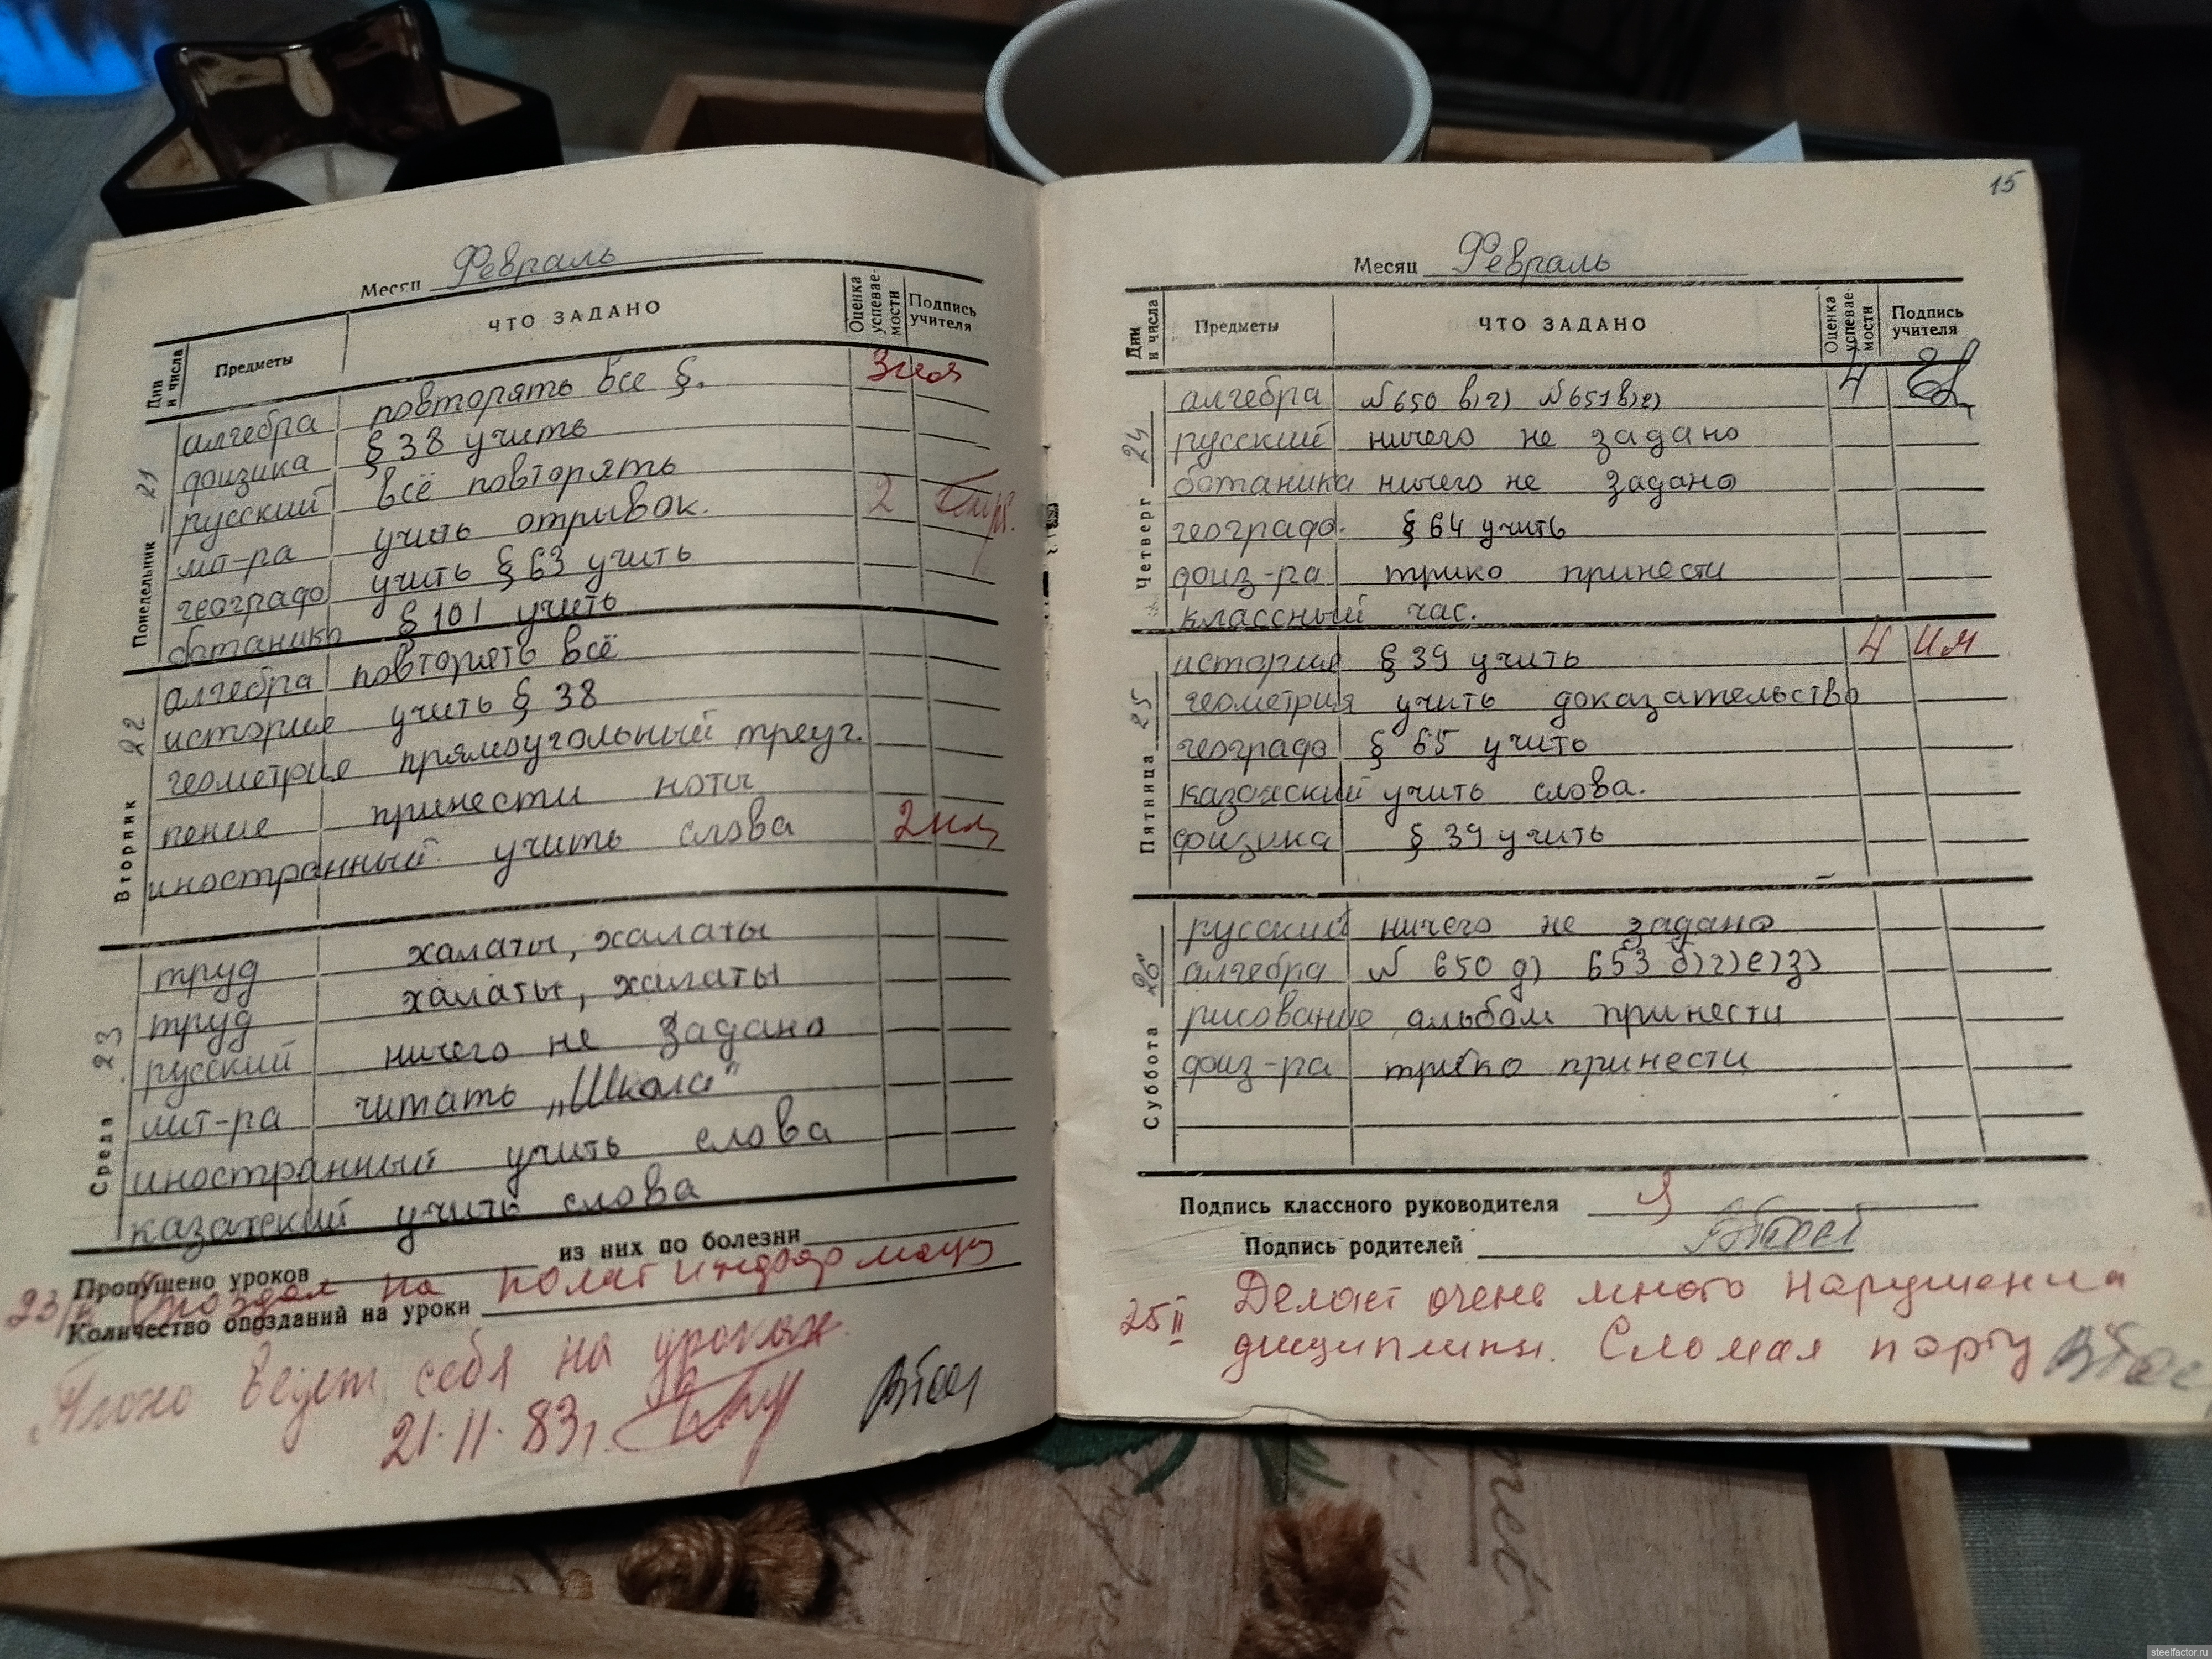 Месяц Февраль
Дни и числа Предметы ЧТО ЗАДАНО Оценка успеваемости Подпись учителя
Понедельник 21
алгебра повторять все §. 3
физика § 38 учить
русский всё повторять
лит-ра учить отрывок. 2
географ учить § 63 учить
ботаника § 101 учить
Вторник 22
алгебра повторять всё
история учить § 38
геометрия прямоугольный треуг.
пение принести ноты
иностранный учить слова 2
Среда 23
труд халаты, халаты
труд халаты, халаты
русский ничего не задано
лит-ра читать „Школа"
иностранный учить слова
казахский учить слова
Пропущено уроков из них по болезни
23/II Опоздал на политинформацию
Количество опозданий на уроки
Плохо ведет себя на уроках.
21.II.83г.
15
Месяц Февраль
Дни и числа Предметы ЧТО ЗАДАНО Оценка успеваемости Подпись учителя
Четверг 24
алгебра №650 в)г) №651 в)г) 4
русский ничего не задано
ботаника ничего не задано
географ. § 64 учить
физ-ра трико принести
классный час.
Пятница 25
история § 39 учить 4 им
геометрия учить доказательство
географ § 65 учить
казахский учить слова.
физика § 39 учить
Суббота 26
русский ничего не задано
алгебра № 650 д) 653 б)г)е)з)
рисование альбом принести
физ-ра трико принести
Подпись классного руководителя
Подпись родителей
25 II Делает очень много нарушений
дисциплины. Сломал парту
steelfactor.ru